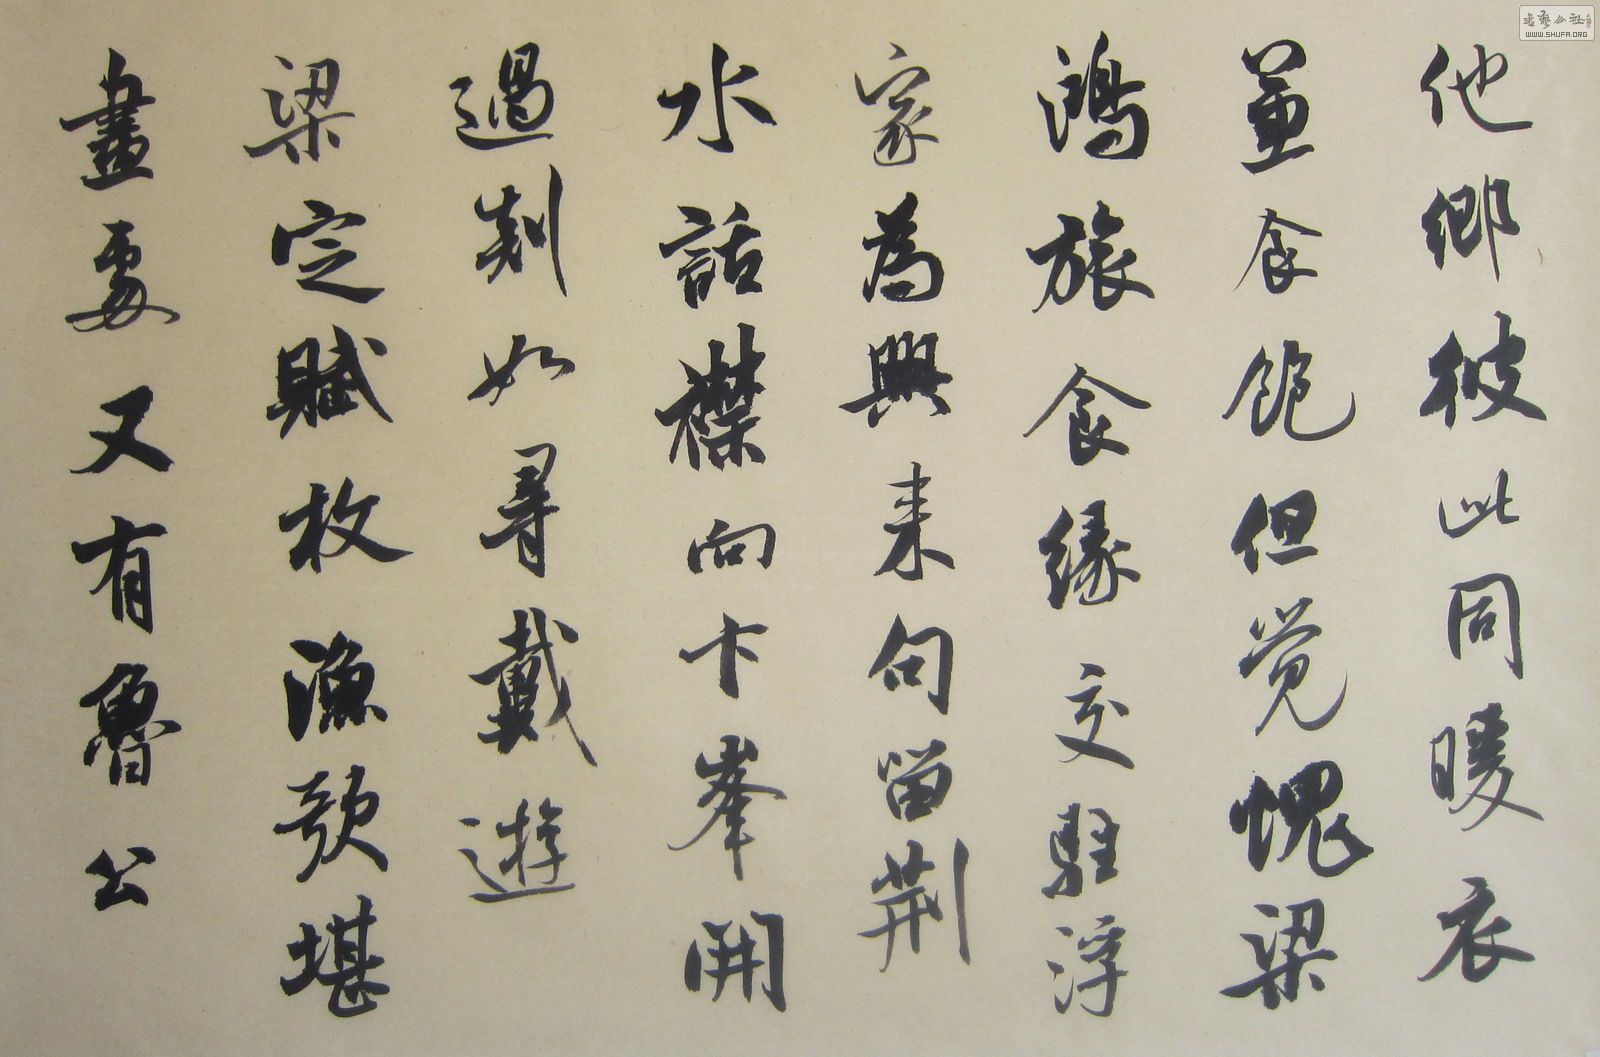 他鄉彼此同暖衣
並食飽但覺愧梁
鴻旅食緣交駐浮
家為興来句留荆
水話襟向卞峯開
過剡如尋戴遊
梁定賦枚漁歌堪
畫處又有魯公
書艺公社
WWW.SHUFA.ORG